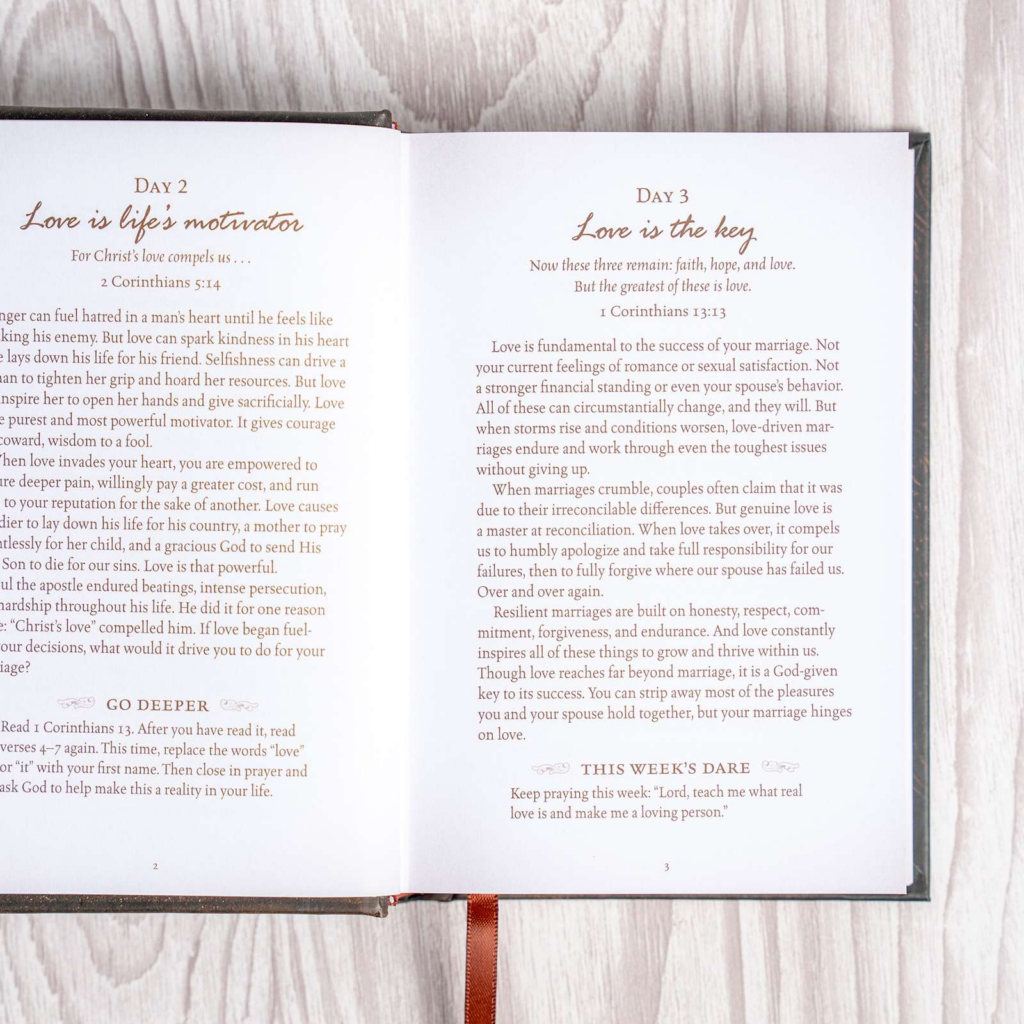 DAY 2
Love is life's motivator
For Christ's love compels us . . .
2 Corinthians 5:14
can fuel hatred in a man's heart until he feels like
his enemy. But love can spark kindness in his heart
lays down his life for his friend. Selfishness can drive a
to tighten her grip and hoard her resources. But love
inspire her to open her hands and give sacrificially. Love
purest and most powerful motivator. It gives courage
coward, wisdom to a fool.
love invades your heart, you are empowered to
deeper pain, willingly pay a greater cost, and run
to your reputation for the sake of another. Love causes
to lay down his life for his country, a mother to pray
for her child, and a gracious God to send His
Son to die for our sins. Love is that powerful.
the apostle endured beatings, intense persecution,
hardship throughout his life. He did it for one reason
“Christ's love” compelled him. If love began fuel-
your decisions, what would it drive you to do for your
GO DEEPER
Read 1 Corinthians 13. After you have read it, read
verses 4–7 again. This time, replace the words “love”
or “it” with your first name. Then close in prayer and
ask God to help make this a reality in your life.
2
DAY 3
Love is the key
Now these three remain: faith, hope, and love.
But the greatest of these is love.
1 Corinthians 13:13
Love is fundamental to the success of your marriage. Not
your current feelings of romance or sexual satisfaction. Not
a stronger financial standing or even your spouse's behavior.
All of these can circumstantially change, and they will. But
when storms rise and conditions worsen, love-driven mar-
riages endure and work through even the toughest issues
without giving up.
When marriages crumble, couples often claim that it was
due to their irreconcilable differences. But genuine love is
a master at reconciliation. When love takes over, it compels
us to humbly apologize and take full responsibility for our
failures, then to fully forgive where our spouse has failed us.
Over and over again.
Resilient marriages are built on honesty, respect, com-
mitment, forgiveness, and endurance. And love constantly
inspires all of these things to grow and thrive within us.
Though love reaches far beyond marriage, it is a God-given
key to its success. You can strip away most of the pleasures
you and your spouse hold together, but your marriage hinges
on love.
THIS WEEK'S DARE
Keep praying this week: “Lord, teach me what real
love is and make me a loving person.”
3